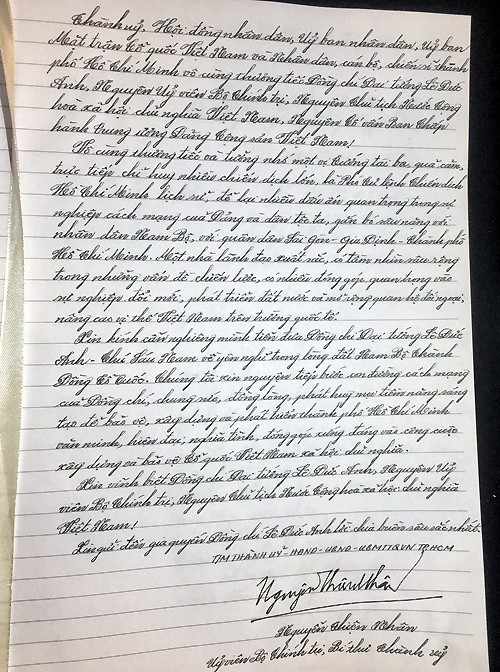 Thành uỷ, Hội đồng nhân dân, Uỷ ban nhân dân, Uỷ ban
Mặt trận Tổ quốc Việt Nam và Nhân dân, cán bộ, chiến sĩ thành
phố Hồ Chí Minh vô cùng thương tiếc Đồng chí Đại tướng Lê Đức
Anh, Nguyên Uỷ viên Bộ Chính trị, Nguyên Chủ tịch Nước Cộng
hoà xã hội chủ nghĩa Việt Nam, Nguyên Cố vấn Ban Chấp
hành Trung ương Đảng Cộng sản Việt Nam!
Vô cùng thương tiếc và tưởng nhớ một vị Tướng tài ba, quả cảm,
trực tiếp chỉ huy nhiều chiến dịch lớn, là Phó Tư lệnh Chiến dịch
Hồ Chí Minh lịch sử, để lại nhiều dấu ấn quan trọng trong sự
nghiệp cách mạng của Đảng và dân tộc ta, gắn bó sâu nặng với
nhân dân Nam Bộ, với quân dân Sài Gòn - Gia Định - Thành phố
Hồ Chí Minh. Một nhà lãnh đạo xuất sắc, có tầm nhìn sâu rộng
trong những vấn đề chiến lược, có nhiều đóng góp quan trọng vào
sự nghiệp đổi mới, phát triển đất nước và mở rộng quan hệ đối ngoại,
nâng cao vị thế Việt Nam trên trường quốc tế!
Xin kính cẩn nghiêng mình tiễn đưa Đồng chí Đại tướng Lê Đức
Anh - Chú Sáu Nam về yên nghỉ trong lòng đất Nam Bộ Thành
Đồng Tổ Quốc. Chúng tôi xin nguyện tiếp bước con đường cách mạng
của Đồng chí, chung sức, đồng lòng, phát huy mọi tiềm năng sáng
tạo để bảo vệ, xây dựng và phát triển thành phố Hồ Chí Minh
văn minh, hiện đại, nghĩa tình, đóng góp xứng đáng vào công cuộc
xây dựng và bảo vệ Tổ quốc Việt Nam xã hội chủ nghĩa.
Xin vĩnh biệt Đồng chí Đại tướng Lê Đức Anh, Nguyên Uỷ
viên Bộ Chính trị, Nguyên Chủ tịch Nước Cộng hoà xã hội chủ nghĩa
Việt Nam!
Xin gửi đến gia quyến Đồng chí Lê Đức Anh lời chia buồn sâu sắc nhất.
TM THÀNH UỶ - HĐND - UBND - UBMTTQVN TP.HCM
Nguyễn Thiện Nhân
Nguyễn Thiện Nhân
Uỷ viên Bộ Chính trị, Bí thư Thành uỷ